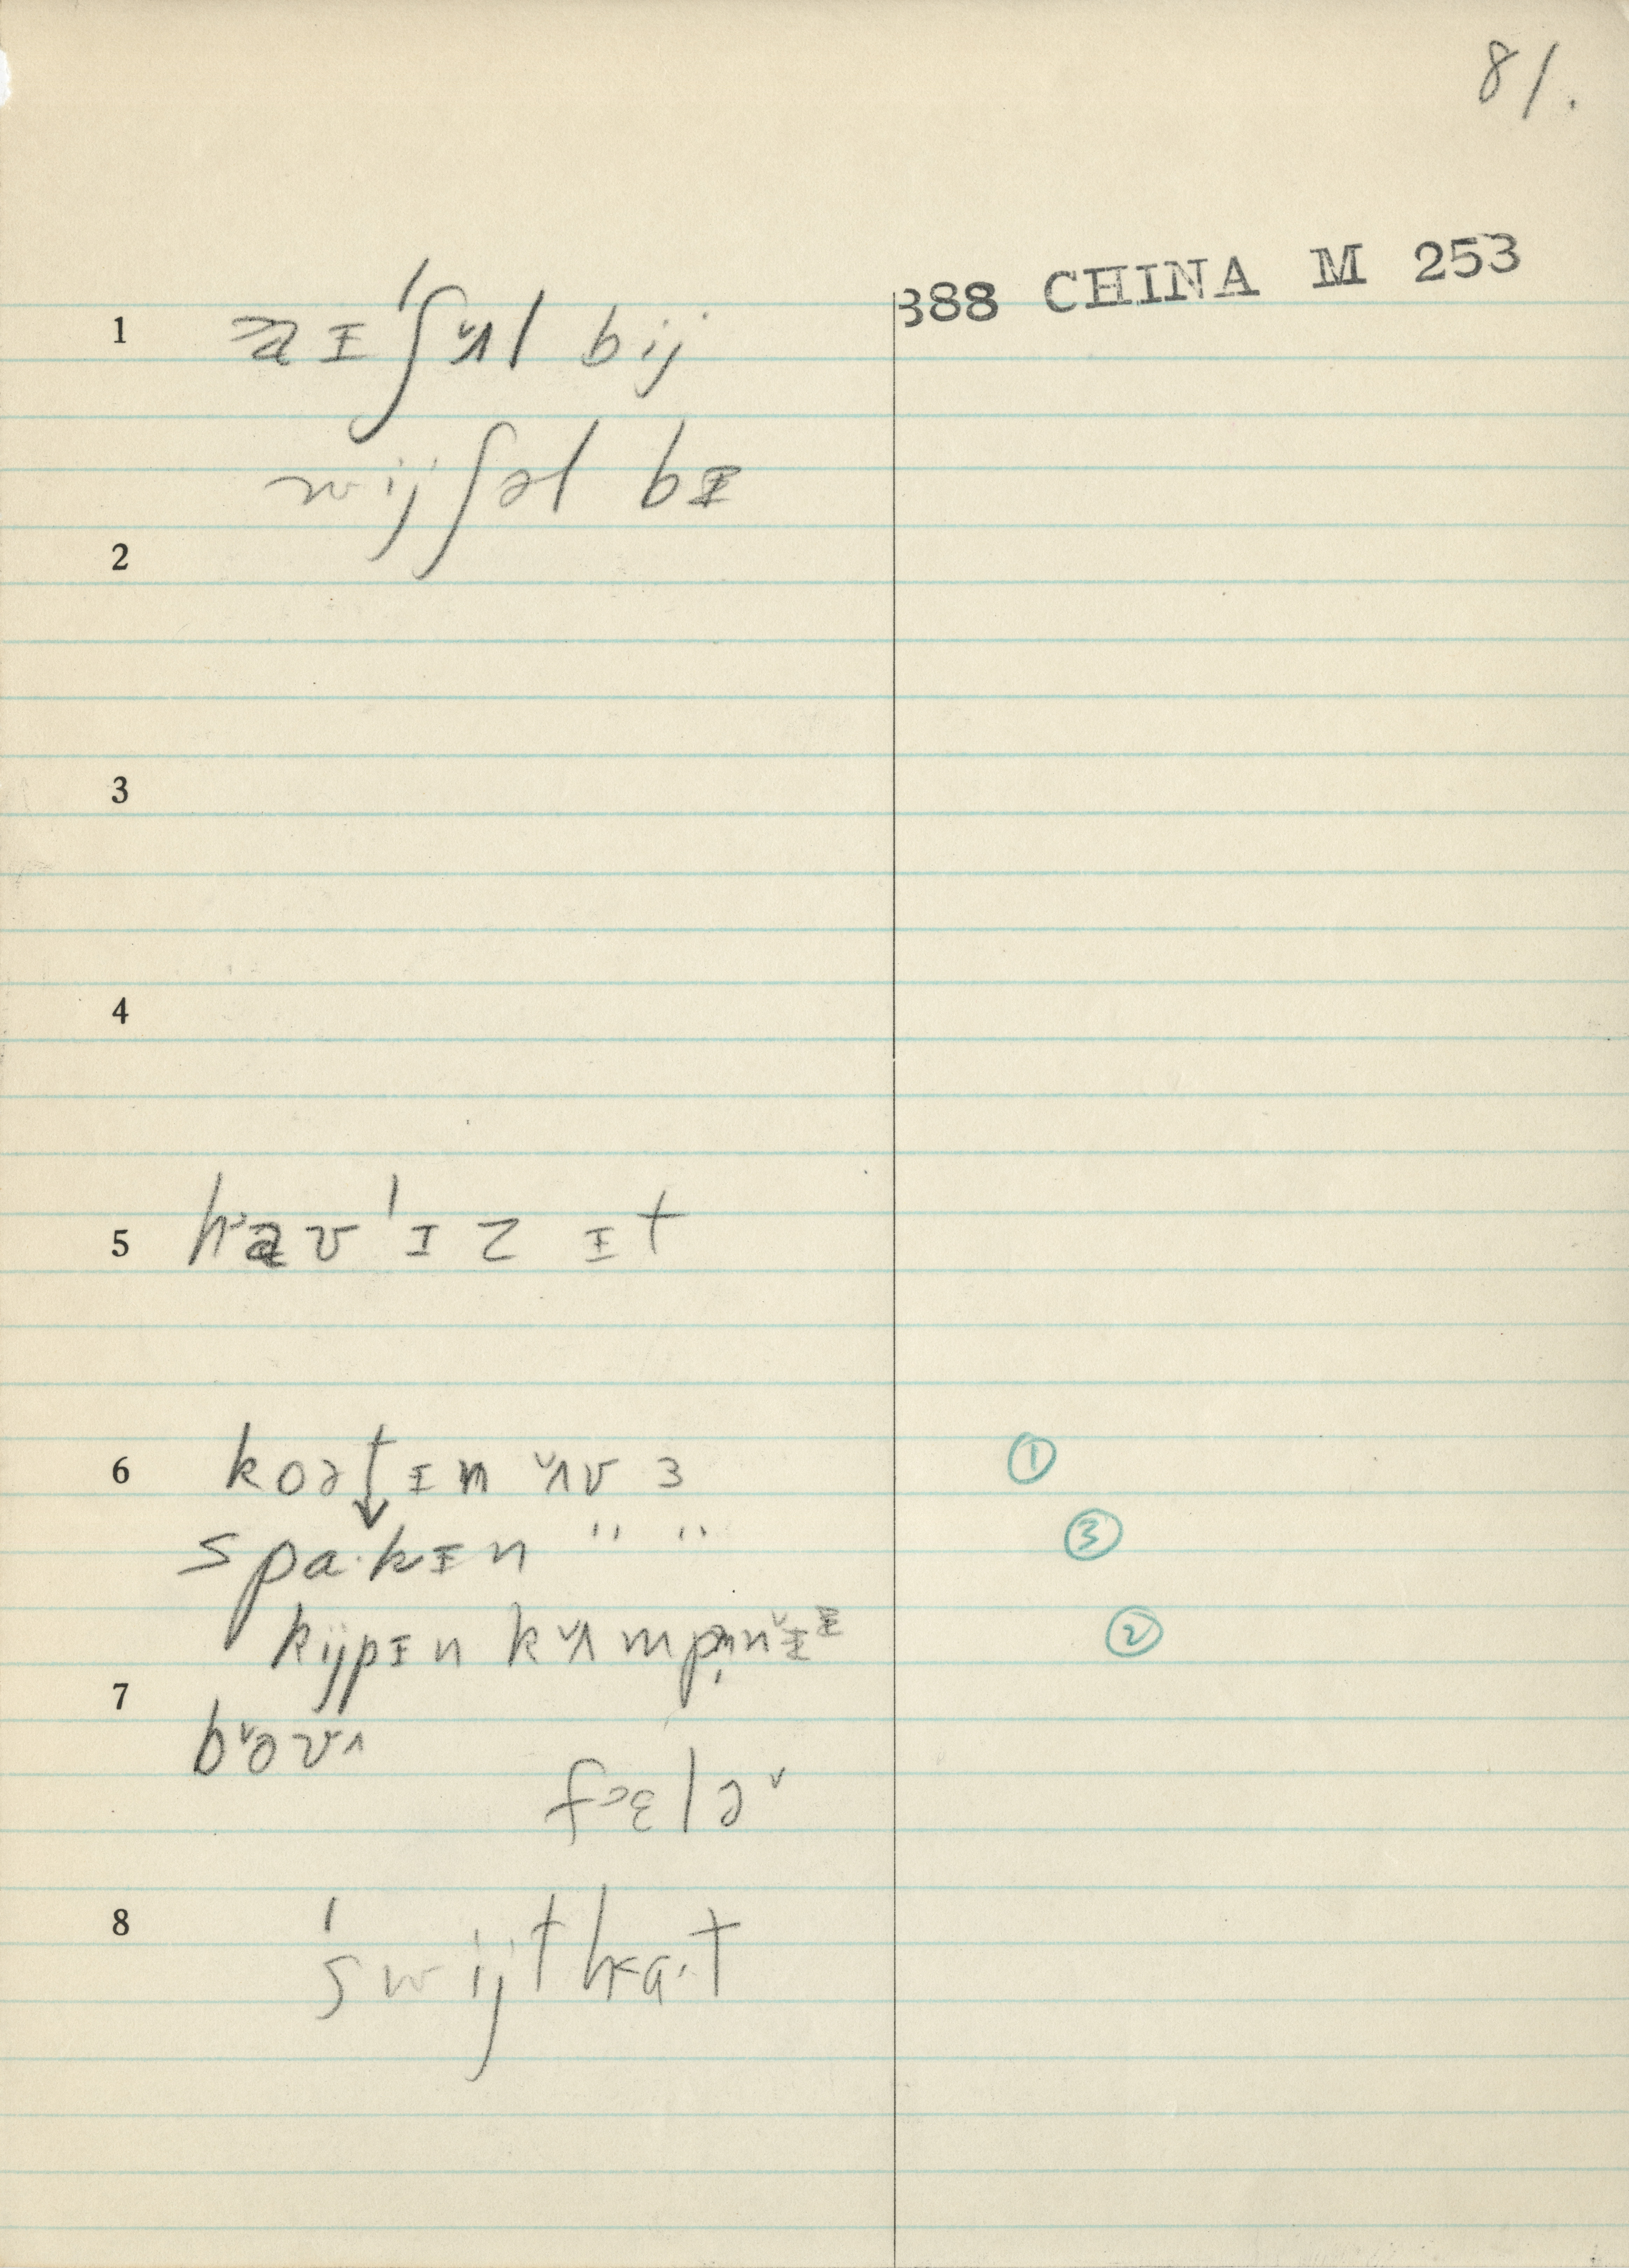 81.
388 CHINA M 253
1 aɪ ˈʃʌ̌l bij
wijʃəl bɪ
2
3
4
5 haʊ ˈɪz ɪt
6 koətɪn ʌ̌v ɜ ①
spa·kɪn " " ③
kijpɪn kʌ̌mpn̩ɪ̌ ②
7
bǒʊʌ
fɛlə̌
8 ˈswijtha·t